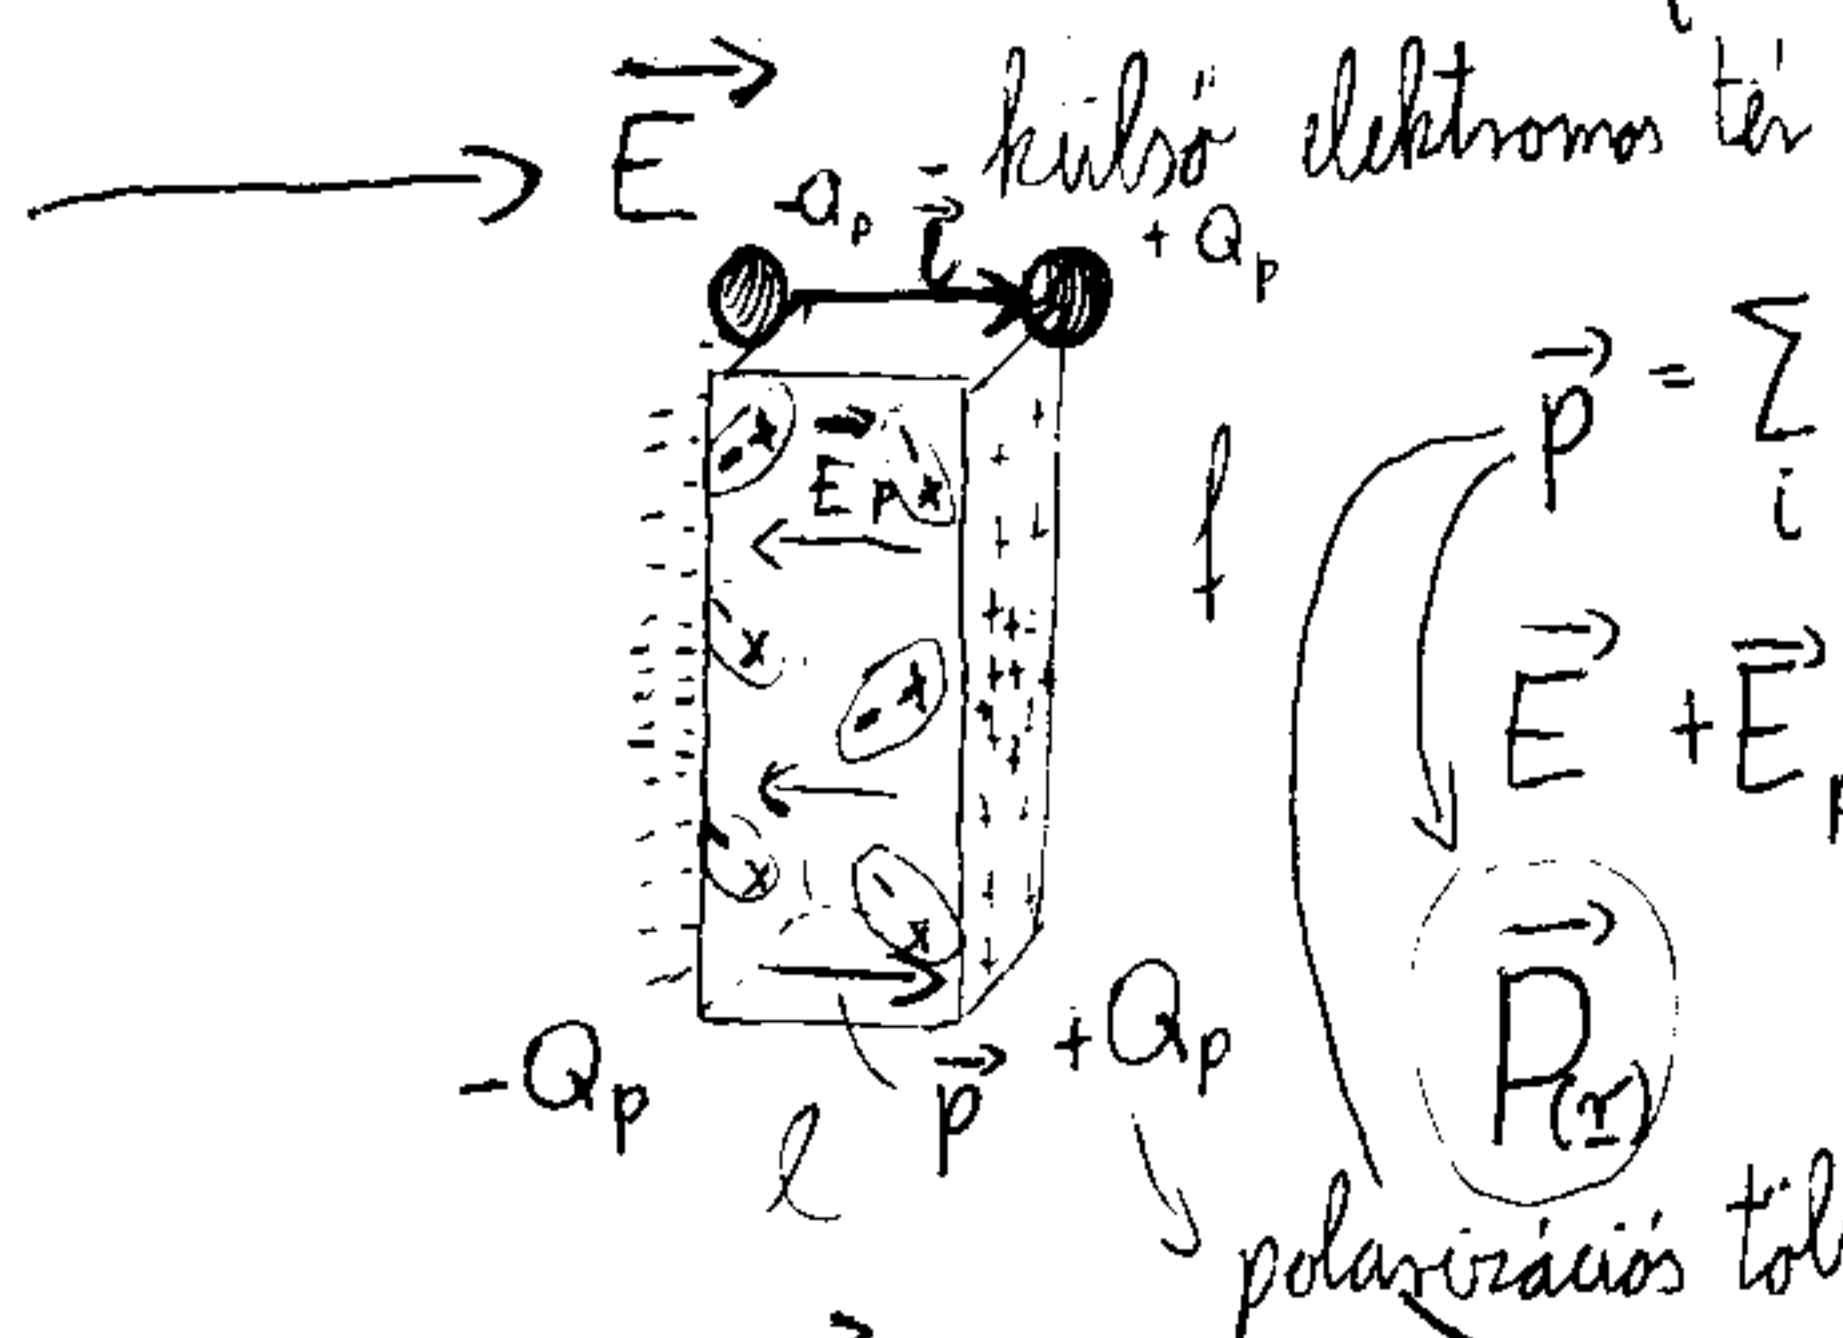 E⃗ - külső elektromos tér
-Q_p l⃗ + Q_p
p⃗ = Σ_i
E⃗_p
f
E⃗ + E⃗_p
P⃗(r)
-Q_p l p⃗ +Q_p
polarizációs